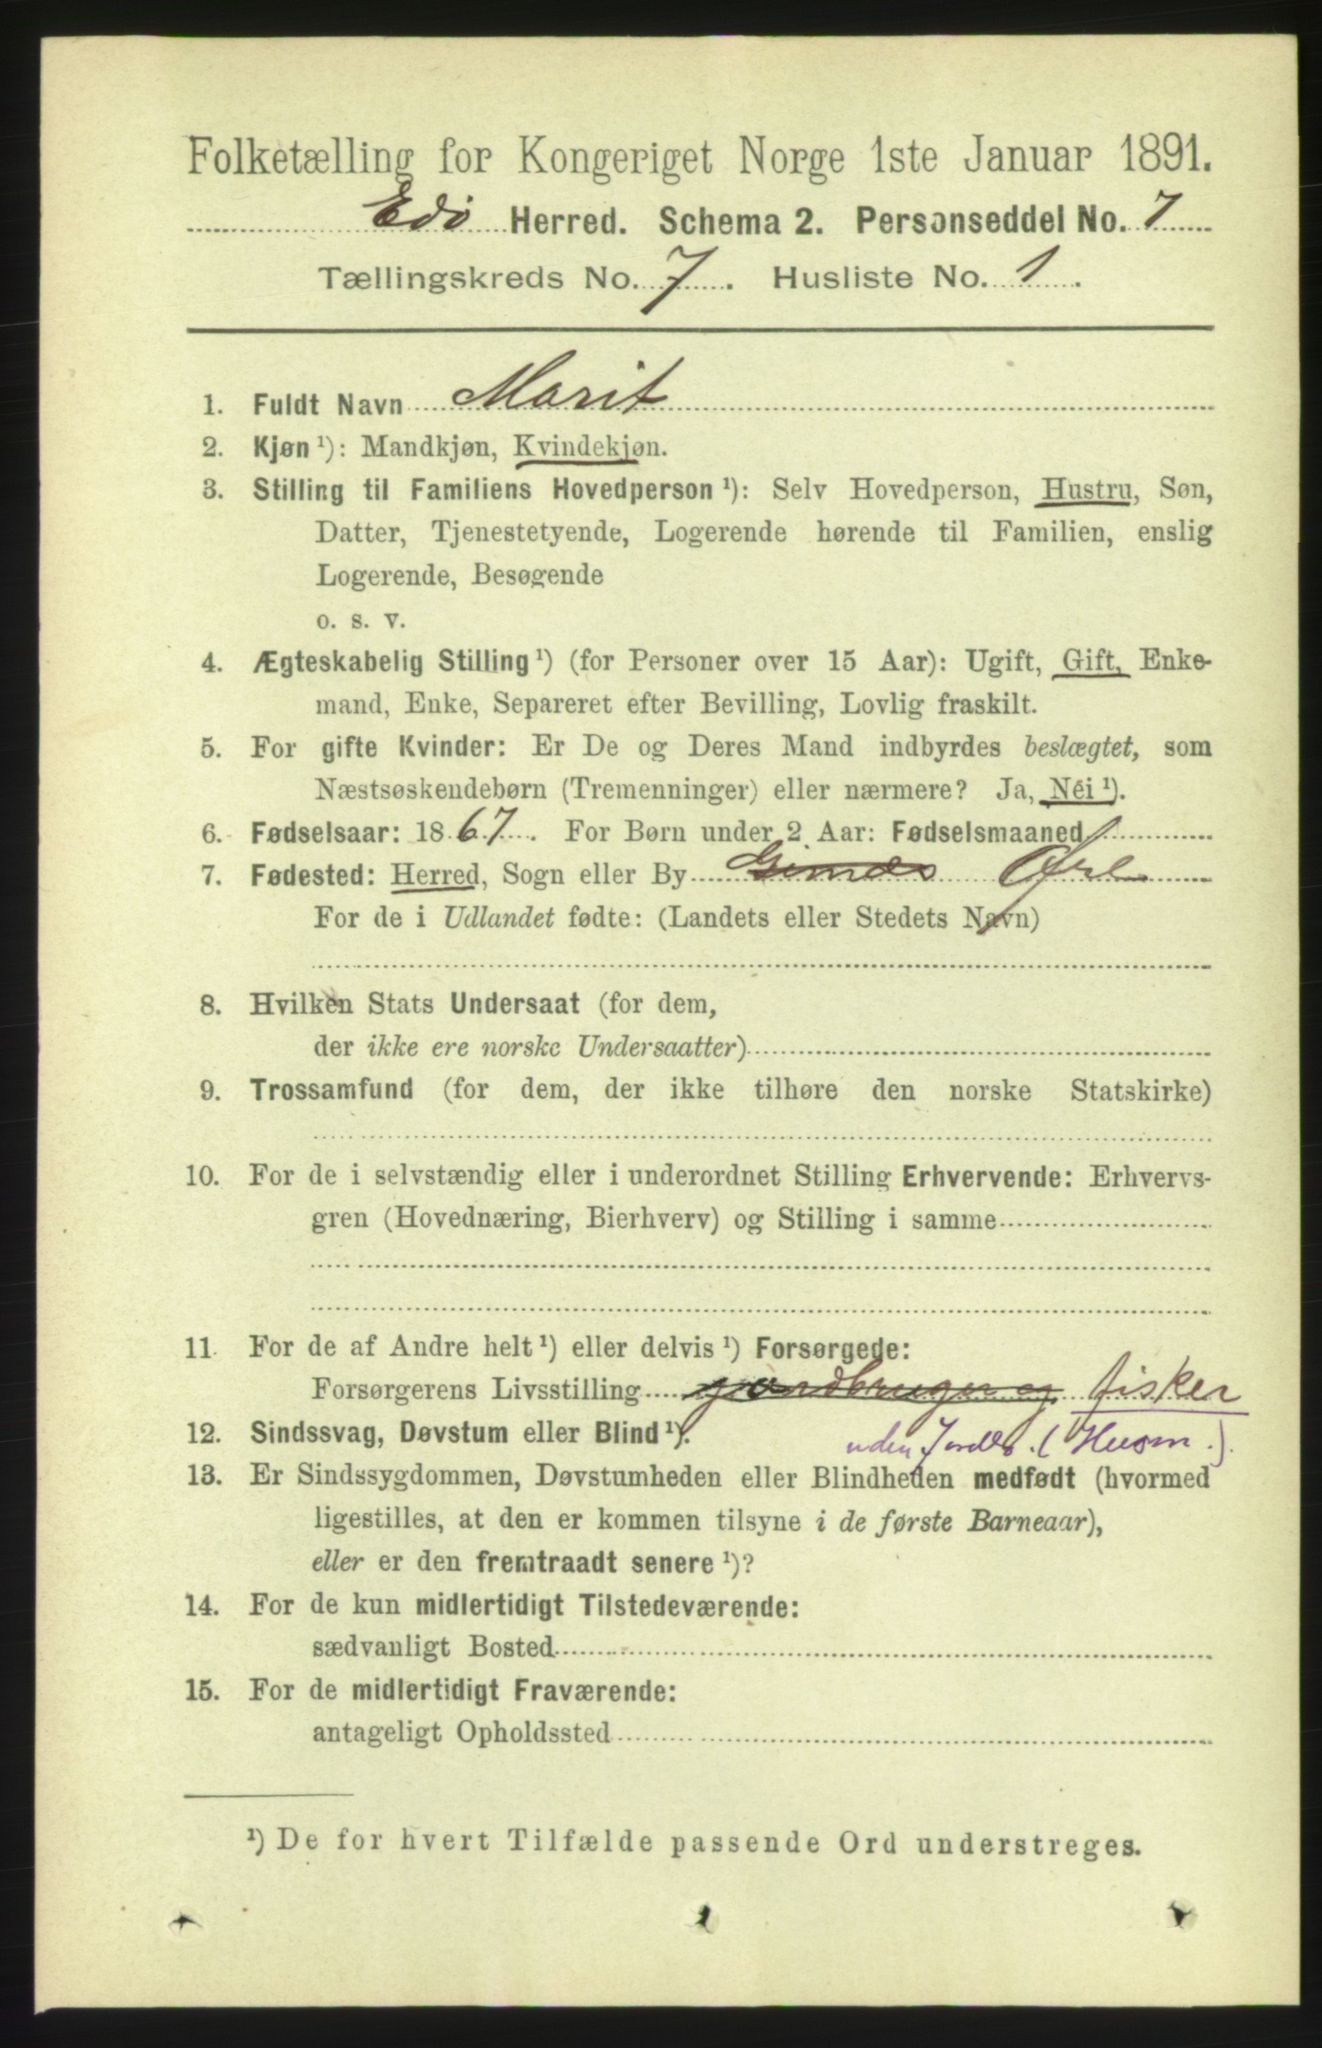 Folketælling for Kongeriget Norge 1ste Januar 1891.
Edø Herred. Schema 2. Personseddel No. 7
Tællingskreds No. 7. Husliste No. 1.
1. Fuldt Navn Marit
2. Kjøn ¹): Mandkjøn, Kvindekjøn.
3. Stilling til Familiens Hovedperson ¹): Selv Hovedperson, Hustru, Søn,
Datter, Tjenestetyende, Logerende hørende til Familien, enslig
Logerende, Besøgende
o. s. v.
4. Ægteskabelig Stilling ¹) (for Personer over 15 Aar): Ugift, Gift, Enke-
mand, Enke, Separeret efter Bevilling, Lovlig fraskilt.
5. For gifte Kvinder: Er De og Deres Mand indbyrdes beslægtet, som
Næstsøskendebørn (Tremenninger) eller nærmere? Ja, Nei ¹).
6. Fødselsaar: 1867. For Børn under 2 Aar: Fødselsmaaned
7. Fødested: Herred, Sogn eller By Gimæs Øre
For de i Udlandet fødte: (Landets eller Stedets Navn)
8. Hvilken Stats Undersaat (for dem,
der ikke ere norske Undersaatter)
9. Trossamfund (for dem, der ikke tilhøre den norske Statskirke)
10. For de i selvstændig eller i underordnet Stilling Erhvervende: Erhvervs-
gren (Hovednæring, Bierhverv) og Stilling i samme
11. For de af Andre helt ¹) eller delvis ¹) Forsørgede:
Forsørgerens Livsstilling gaardbruger og fisker
12. Sindssvag, Døvstum eller Blind ¹). uden Jordb. (Husm.).
13. Er Sindssygdommen, Døvstumheden eller Blindheden medfødt (hvormed
ligestilles, at den er kommen tilsyne i de første Barneaar),
eller er den fremtraadt senere ¹)?
14. For de kun midlertidigt Tilstedeværende:
sædvanligt Bosted
15. For de midlertidigt Fraværende:
antageligt Opholdssted
¹) De for hvert Tilfælde passende Ord understreges.